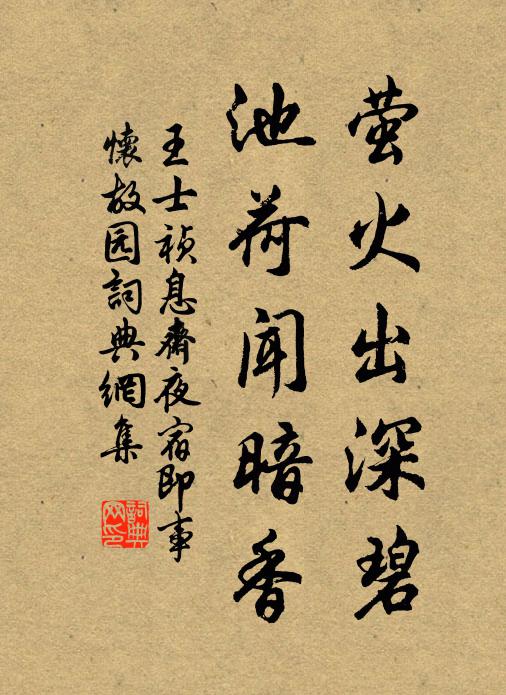 萤火出深碧
池荷闻暗香
王士祯息齋夜宿即事
懷故园詞典網集
詞典
网印